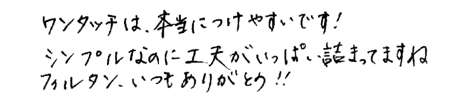 ワンタッチは、本当につけやすいです!
シンプルなのに工夫がいっぱい詰まってますね
フィルタン、いつもありがとう!!